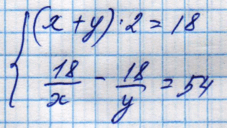 (x + y) · 2 = 18
18/x - 18/y = 54